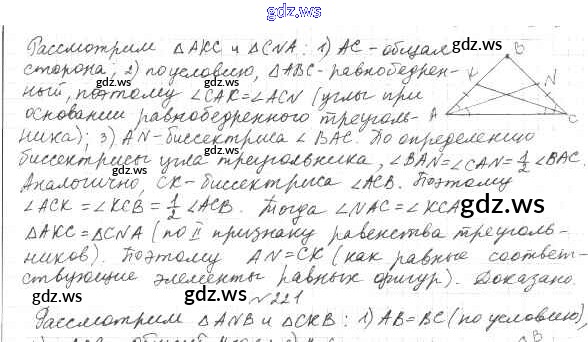 gdz.ws
Рассмотрим △AKC и △CNA: 1) AC - общая
сторона; 2) по условию, △ABC - равнобедрен-
ный, поэтому ∠CAK = ∠ACN (углы при
основании равнобедренного треуголь-
ника); 3) AN - биссектриса ∠BAC. По определению
биссектрисы угла треугольника, ∠BAN = ∠CAN = 1/2 ∠BAC.
Аналогично, CK - биссектриса ∠ACB. Поэтому
∠ACK = ∠KCB = 1/2 ∠ACB. Тогда ∠NAC = ∠KCA
△AKC = △CNA (по II признаку равенства треуголь-
ников). Поэтому AN = CK (как равные соответ-
ствующие элементы равных фигур). Доказано.
№221
Рассмотрим △ANB и △CKB: 1) AB = BC (по условию),
B
N
A
C
gdz.ws
gdz.ws
gdz.ws
gdz.ws
gdz.ws
gdz.ws
gdz.ws
B